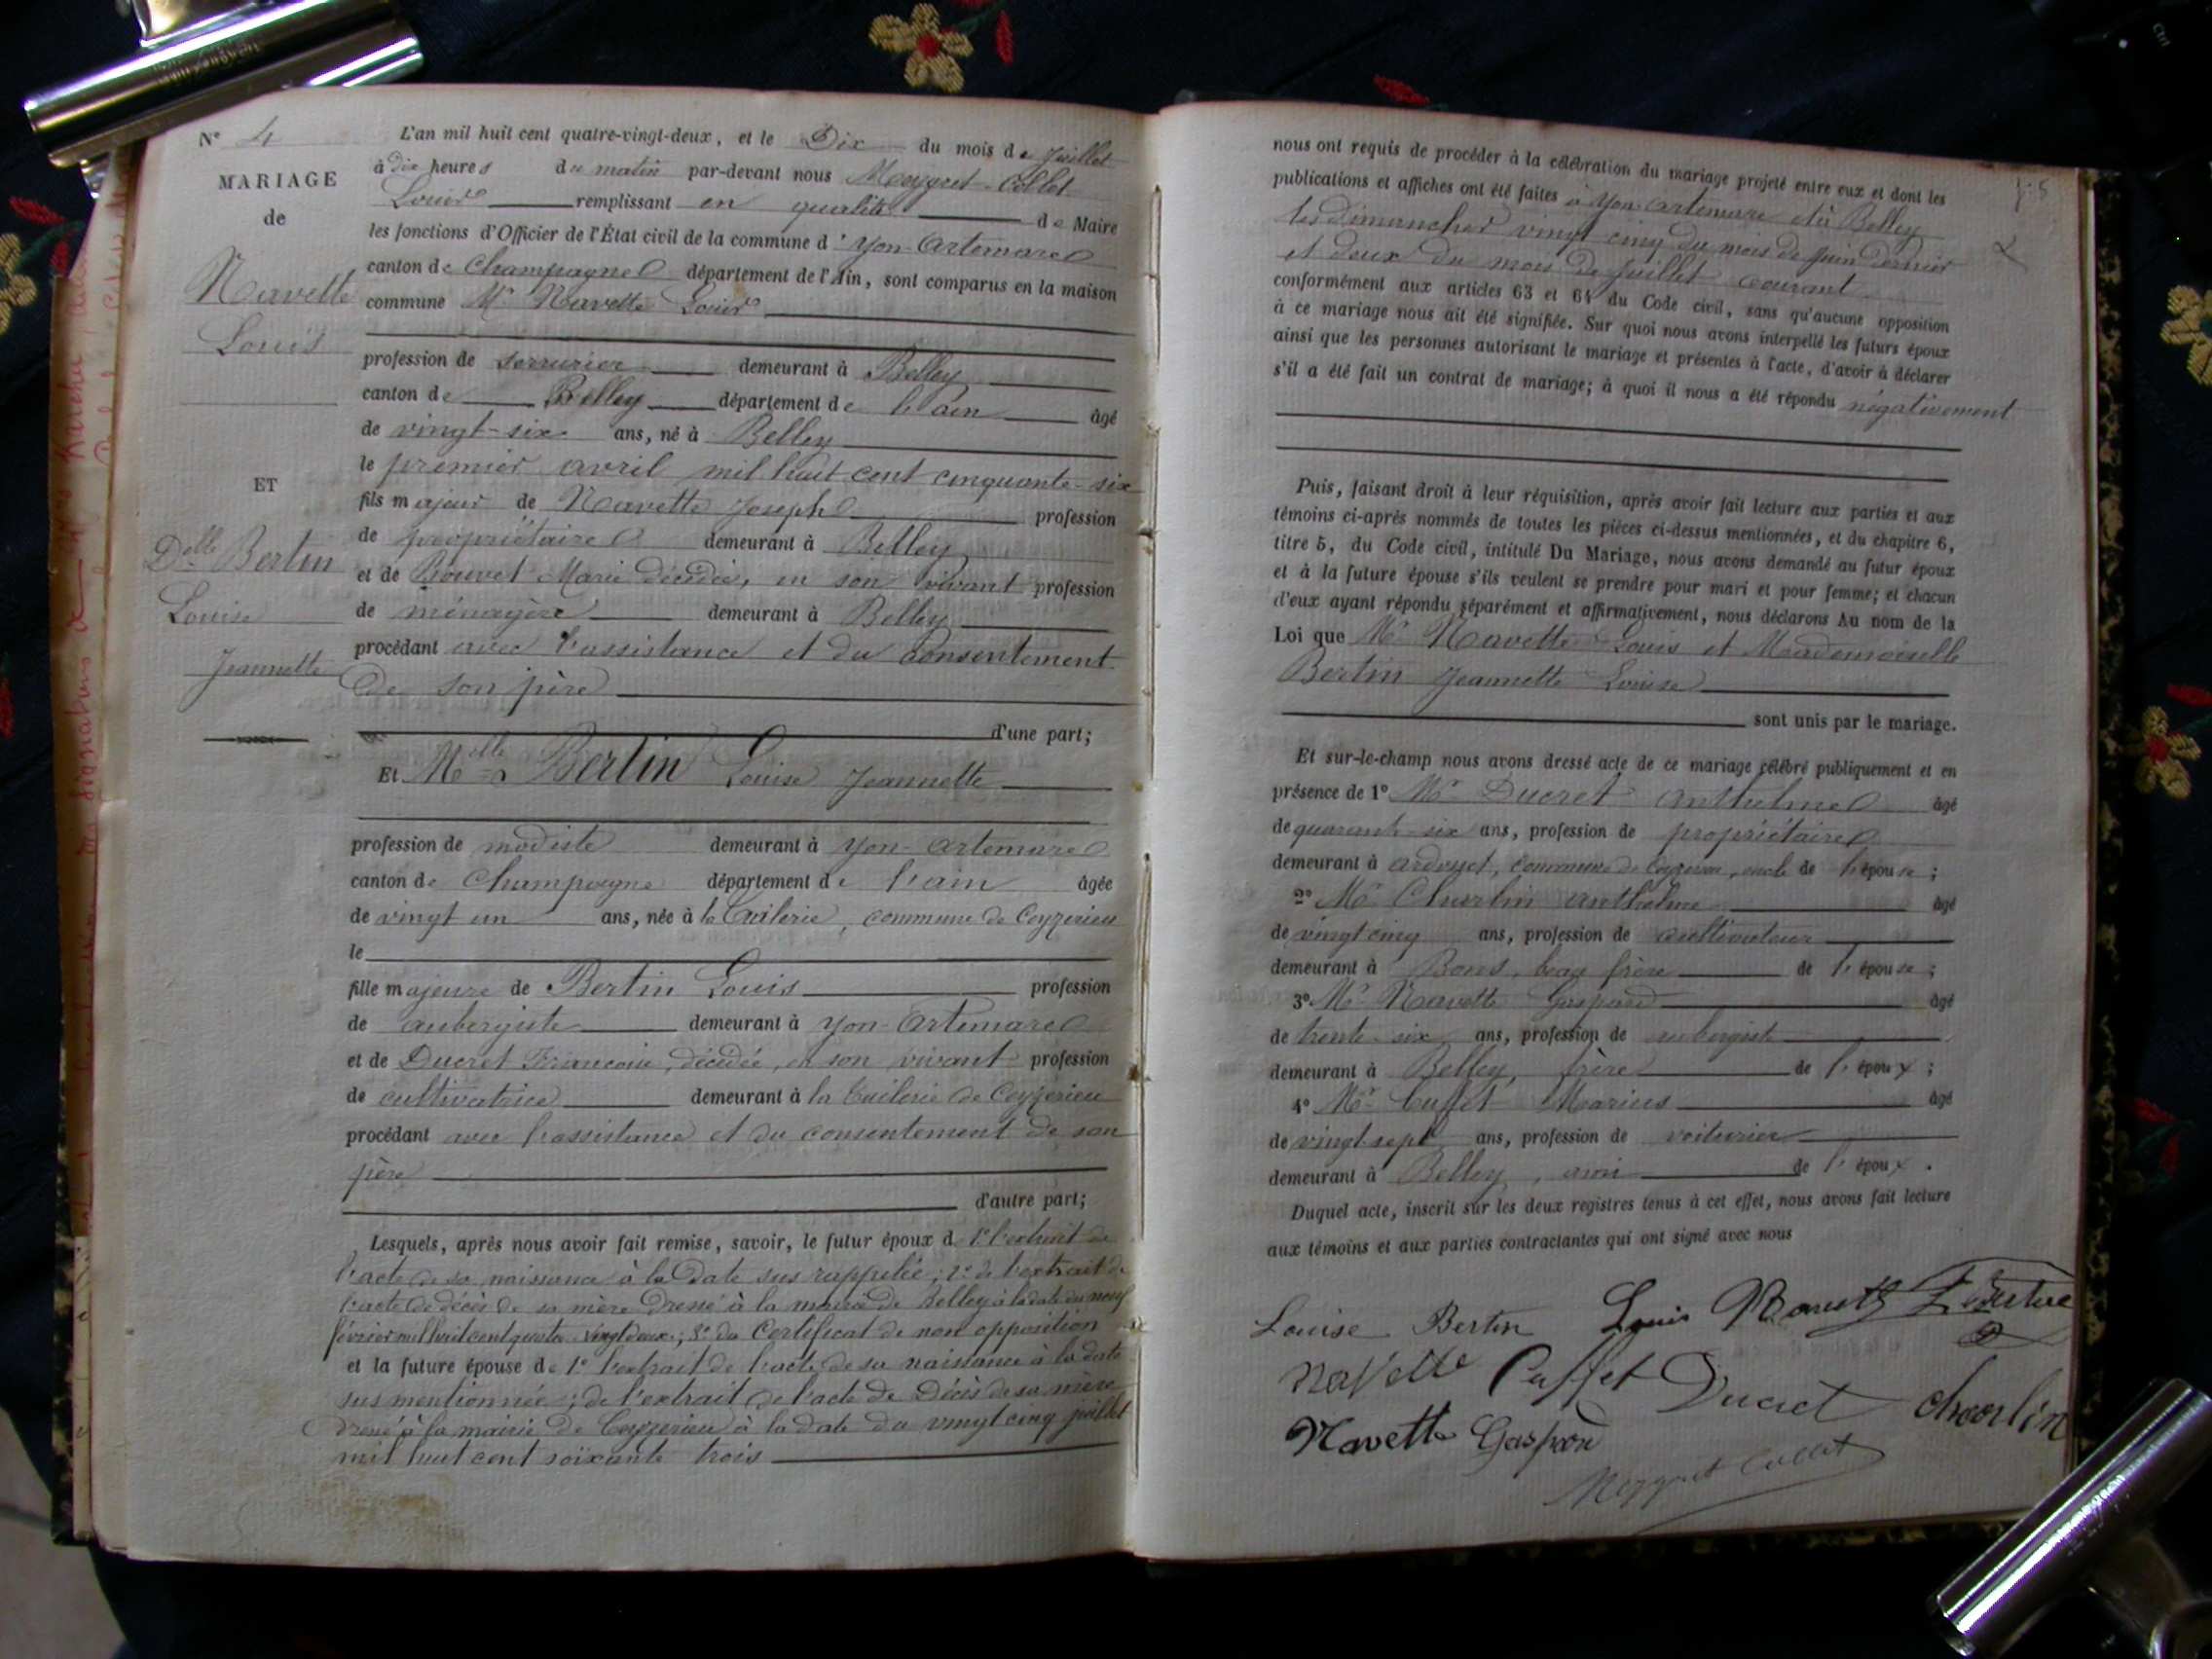 N° 4
MARIAGE
de
Navette
Louis
ET
Delle Bertin
Louise
Jeannette
L'an mil huit cent quatre-vingt-deux, et le Dix du mois de juillet
à dix heures du matin par-devant nous Meygret-Collet
Louis remplissant en qualité de Maire
les fonctions d'Officier de l'État civil de la commune d'Yon-Artemare
canton de Champagne département de l'Ain, sont comparus en la maison
commune Mr Navette Louis
profession de serrurier demeurant à Belley
canton de Belley département de l'ain âgé
de vingt-six ans, né à Belley
le premier avril mil huit cent cinquante-six
fils majeur de Navette Joseph profession
de propriétaire demeurant à Belley
et de Bouvet Marie décédée, en son vivant profession
de ménagère demeurant à Belley
procédant avec l'assistance et du consentement
de son père
d'une part;
Et Melle Bertin Louise Jeannette
profession de modiste demeurant à Yon-Artemare
canton de Champagne département de l'ain âgée
de vingt un ans, née à la Tuilerie, commune de Ceyzerieu
le
fille majeure de Bertin Louis profession
de aubergiste demeurant à Yon-Artemare
et de Ducret Françoise, décédée, en son vivant profession
de cultivatrice demeurant à la Tuilerie de Ceyzerieu
procédant avec l'assistance et du consentement de son
père
d'autre part;
Lesquels, après nous avoir fait remise, savoir, le futur époux de 1° l'extrait de
l'acte de sa naissance à la date sus rappelée; 2° de l'extrait de
l'acte de décès de sa mère dressé à la mairie de Belley à la date du neuf
février mil huit cent quatre-vingt deux; 3° du Certificat de non opposition
et la future épouse de 1° l'extrait de l'acte de sa naissance à la date
sus mentionnée; de l'extrait de l'acte de Décès de sa mère
dressé à la mairie de Ceyzerieu à la date du vingt cinq juillet
mil huit cent soixante trois
nous ont requis de procéder à la célébration du mariage projeté entre eux et dont les
publications et affiches ont été faites à Yon-Artemare et à Belley
les dimanches vingt cinq du mois de juin dernier
et deux du mois de juillet courant
conformément aux articles 63 et 64 du Code civil, sans qu'aucune opposition
à ce mariage nous ait été signifiée. Sur quoi nous avons interpellé les futurs époux
ainsi que les personnes autorisant le mariage et présentes à l'acte, d'avoir à déclarer
s'il a été fait un contrat de mariage; à quoi il nous a été répondu négativement
Puis, faisant droit à leur réquisition, après avoir fait lecture aux parties et aux
témoins ci-après nommés de toutes les pièces ci-dessus mentionnées, et du chapitre 6,
titre 5, du Code civil, intitulé Du Mariage, nous avons demandé au futur époux
et à la future épouse s'ils veulent se prendre pour mari et pour femme; et chacun
d'eux ayant répondu séparément et affirmativement, nous déclarons Au nom de la
Loi que Mr Navette Louis et Mademoiselle
Bertin Jeannette Louise
sont unis par le mariage.
Et sur-le-champ nous avons dressé acte de ce mariage célébré publiquement et en
présence de 1° Mr Ducret Anthelme âgé
de quarante-six ans, profession de propriétaire
demeurant à Ardosset, commune de Ceyzerieu, oncle de l'épouse;
2° Mr Charlin Anthelme âgé
de vingt cinq ans, profession de cultivateur
demeurant à Bons, beau frère de l'épouse;
3° Mr Navette Gaspard âgé
de trente-six ans, profession de aubergiste
demeurant à Belley, frère de l'époux;
4° Mr Cuffet Marius âgé
de vingt sept ans, profession de voiturier
demeurant à Belley, ami de l'époux.
Duquel acte, inscrit sur les deux registres tenus à cet effet, nous avons fait lecture
aux témoins et aux parties contractantes qui ont signé avec nous
Louise Bertin Louis Navette
Navette Cuffet Ducret Charlin
Navette Gaspard
Meygret Collet